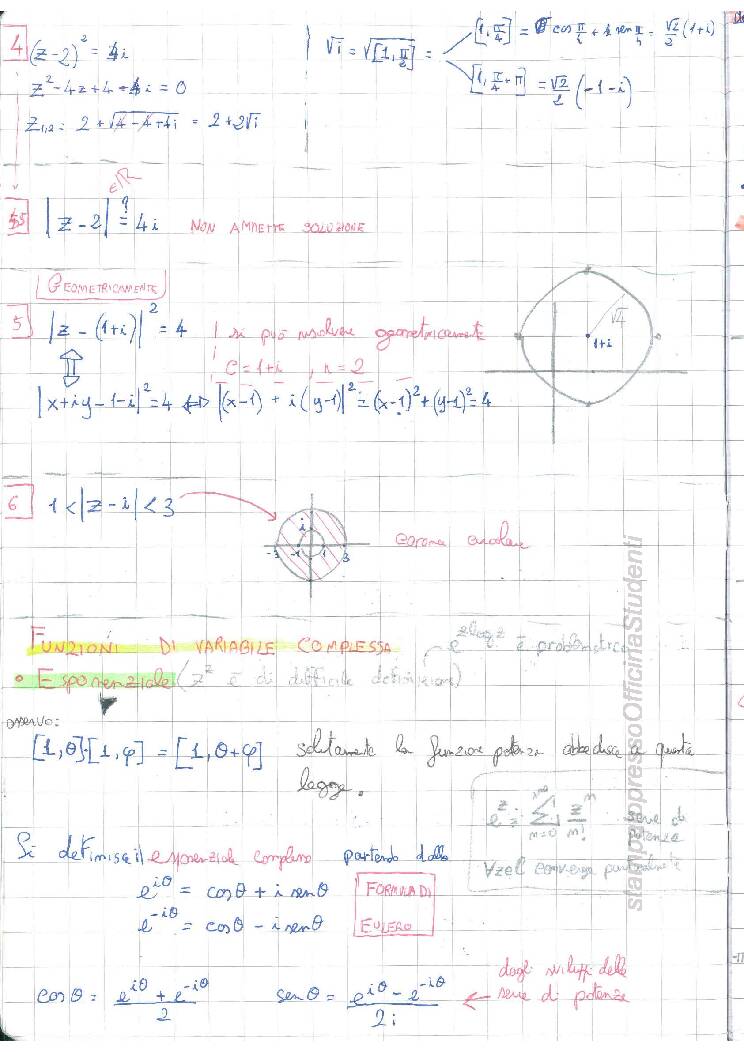 4 (z-2)² = 4i
z² - 4z + 4 - 4i = 0
z₁,₂ = 2 + √(4 - 4 + 4i) = 2 + 2√i
√i = √[1, π/2] =
[1, π/4] = cos π/4 + i sen π/4 = √2/2 (1+i)
[1, π/4 + π] = √2/2 (-1-i)
∈ℝ
|z-2| ≟ 4i NON AMMETTE SOLUZIONE
GEOMETRICAMENTE
5 |z-(1+i)|² = 4 si può risolvere geometricamente
C = 1+i , r = 2
⇕
|x+iy-1-i|² = 4 ⇔ |(x-1) + i(y-1)|² = (x-1)² + (y-1)² = 4
√4
1+i
6 1 < |z-i| < 3
i
-3 -1 1 3
corona circolare
FUNZIONI DI VARIABILE COMPLESSA
e^{z log z} è problematico
• Esponenziale (z^z è di difficile definizione)
osservo:
[1,θ]·[1,φ] = [1, θ+φ] solitamente la funzione potenza obbedisce a questa
legge.
e^z = ∑_{n=0}^{+∞} z^n/n! serie di
potenza
∀z∈ℂ converge puntualmente
Si definisce il esponenziale complesso partendo dalla
e^{iθ} = cosθ + i senθ
e^{-iθ} = cosθ - i senθ
FORMULA DI
EULERO
cosθ = (e^{iθ} + e^{-iθ})/2 senθ = (e^{iθ} - e^{-iθ})/2i
← dagli sviluppi delle
serie di potenze
stampatopressoOfficinaStudenti